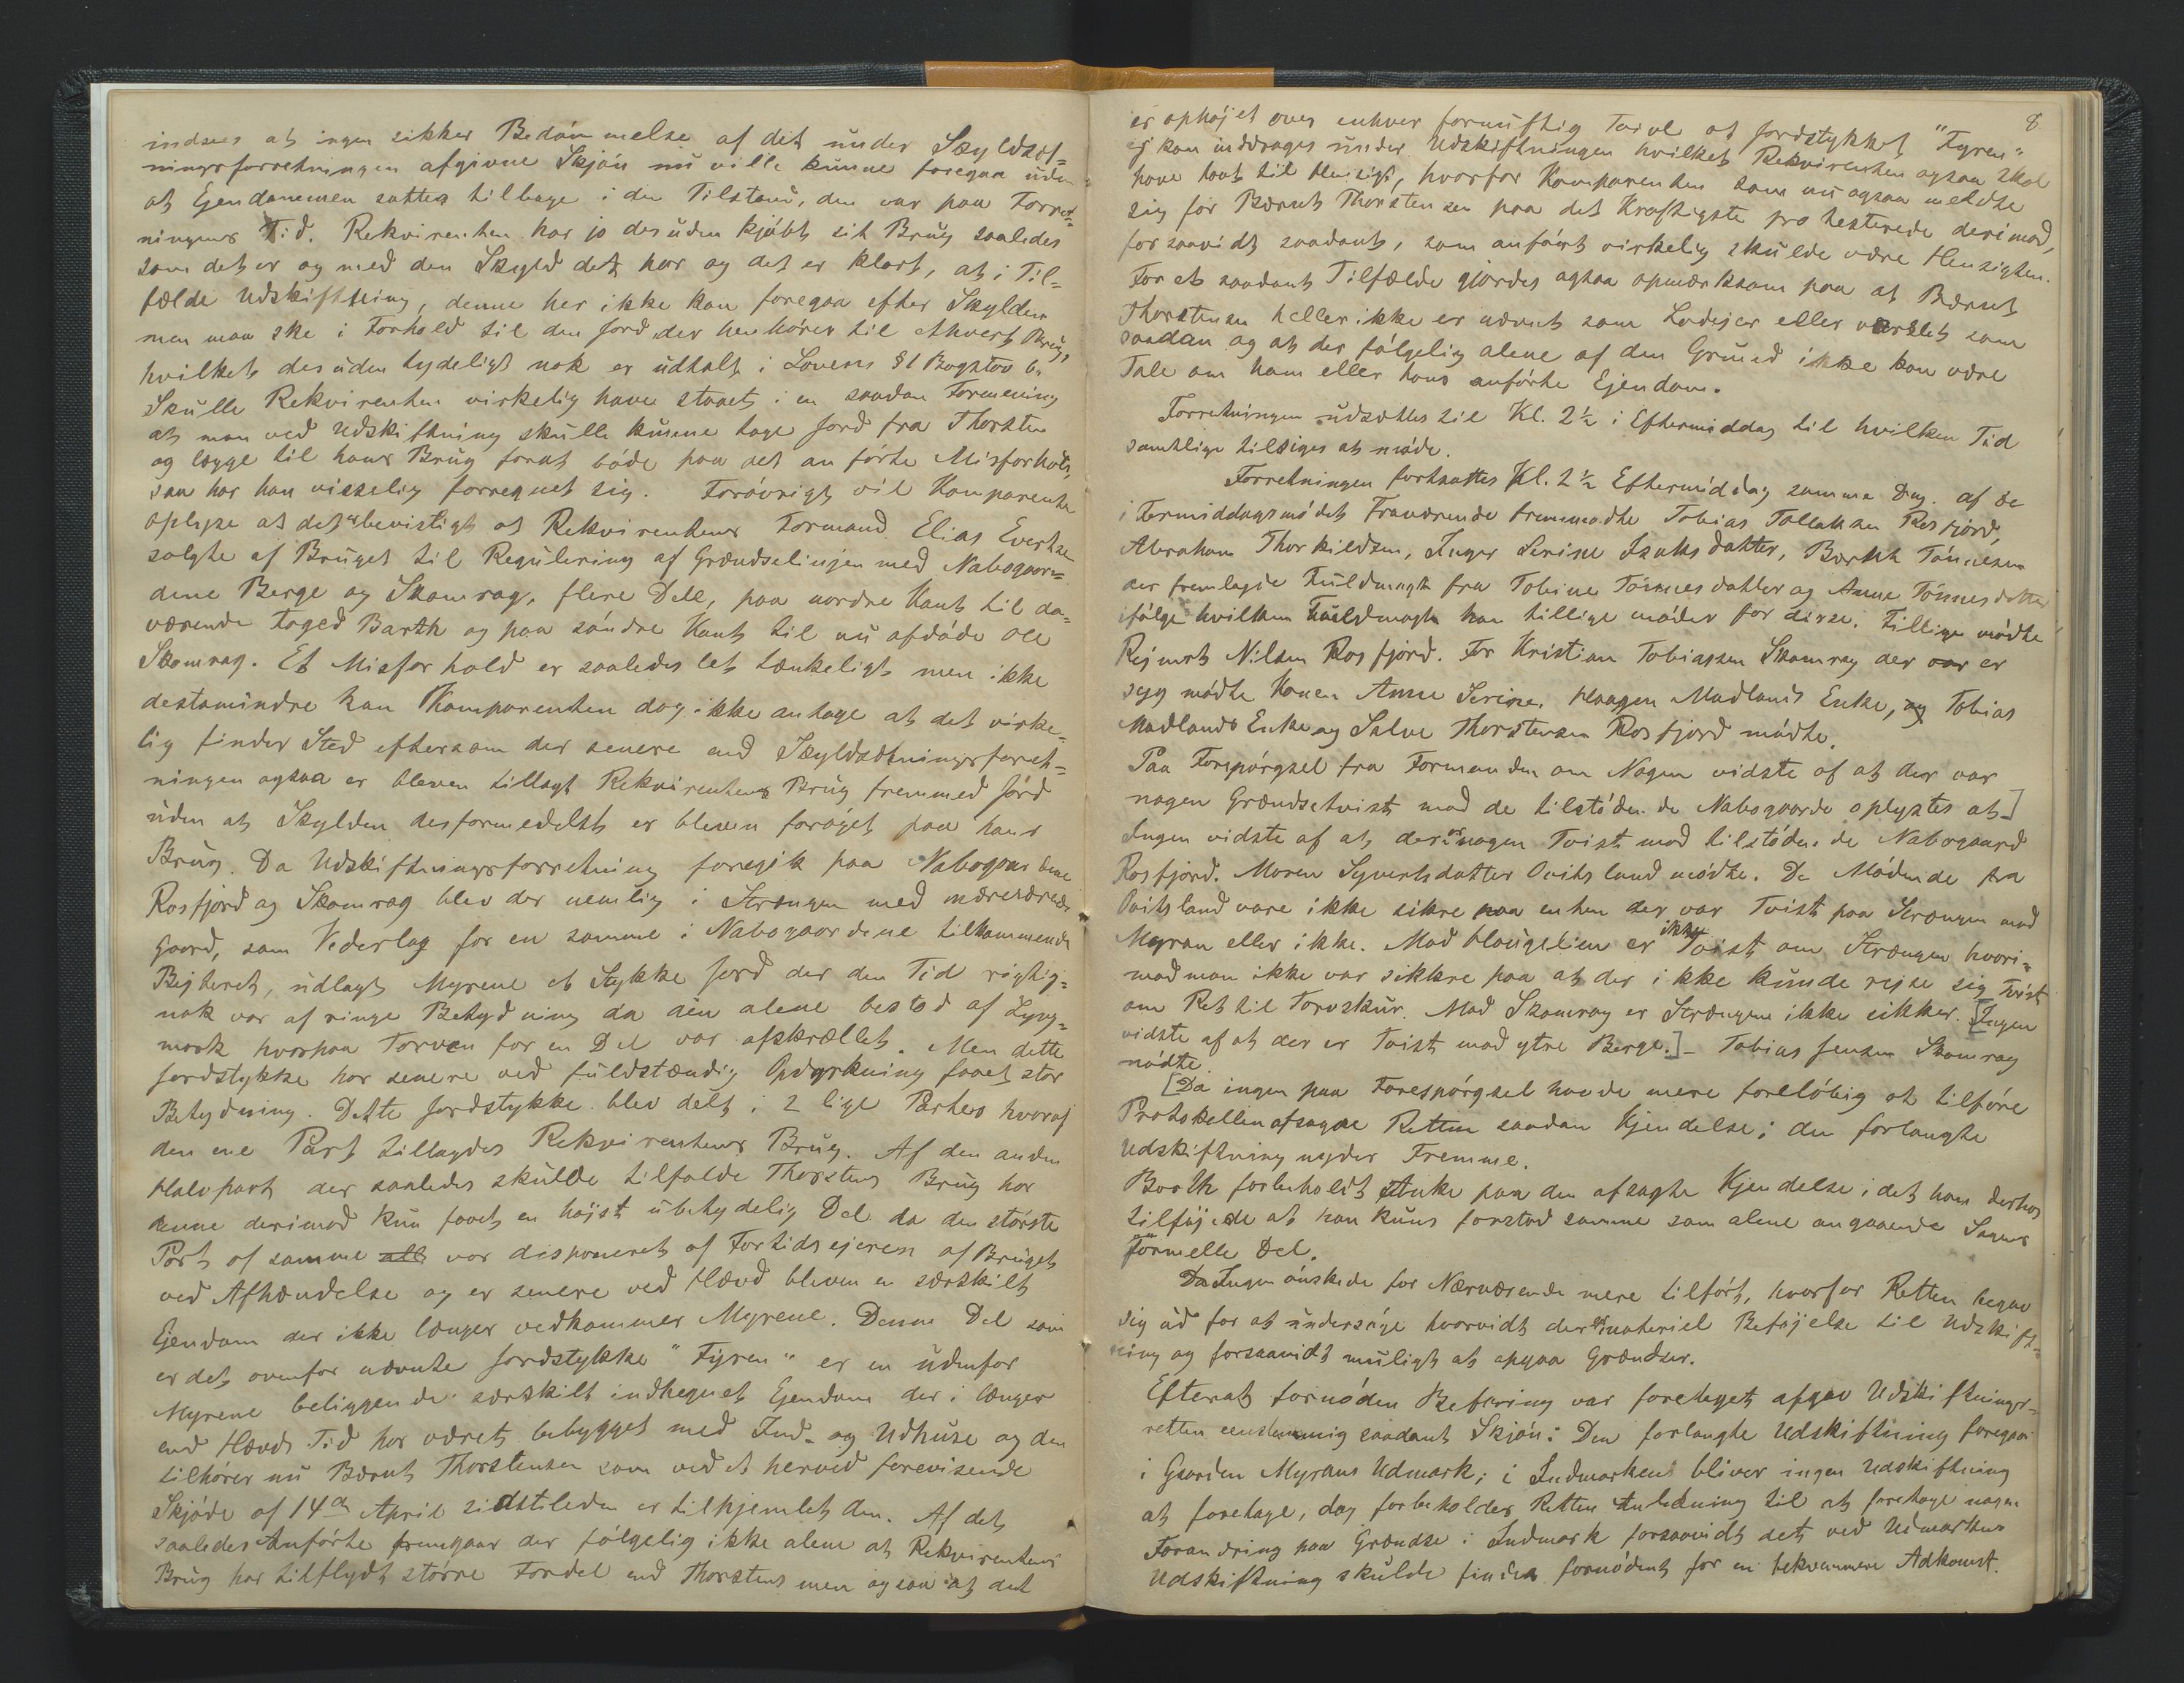 indsees at ingen sikker Bedømmelse af det under Skyldsæt=
ningsforretningen afgivne Skjøn nu ville kunne foregaa uden
at Ejendommen sattes tilbage i den Tilstand, den var paa Forret=
ningens Tid. Rekvirenten har jo desuden kjøbt sit Brug saaledes
som det er og med den Skyld det har og det er klart, at i Til=
fælde Udskiftning, denne her ikke kan foregaa efter Skylden
men maa ske i Forhold til den Jord der henhører til ethvert Brug,
hvilket desuden tydeligt nok er udtalt i Lovens § 1 Bogstav b.
Skulle Rekvirenten virkelig have staaet i en saadan Formening
at man ved Udskiftning skulle kunne tage Jord fra Thorsten
og lægge til hans Brug forat bøde paa det anførte Misforhold,
saa har han visselig forregnet sig. Forøvrigt vil Komparenten
oplyse at det er beviisligt at Rekvirentens Formand Elias Evertsen
solgte af Bruget til Regulering af Grændselinjen med Nabogaar=
dene Berge og Skomrag, flere Dele, paa nordre Kant til da=
værende Foged Barth og paa søndre Kant til nu afdøde Ole
Skomrag. Et Misforhold er saaledes let tænkeligt men ikke
destomindre kan Komparenten dog ikke antage at det virke=
lig finder Sted eftersom der senere end Skyldsætningsforret=
ningen ogsaa er bleven tillagt Rekvirentens Brug fremmed Jord
uden at Skylden desformedelst er bleven forøget paa hans
Brug. Da Udskiftningsforretning foregik paa Nabogaardene
Rosfjord og Skomrag blev der nemlig i Strængen med nærværende
Gaard, som Vederlag for en samme i Nabogaardene tilkommende
Bejteret, udlagt Myrene et Stykke Jord der den Tid rigtig=
nok var af ringe Betydning da den alene bestod af Lyng=
mark hvorpaa Torven for en Del var afskrællet. Men dette
Jordstykke har senere ved fuldstændig Opdyrkning faaet stor
Betydning. Dette Jordstykke blev delt i 2 lige Parter hvoraf
den ene Part tillagdes Rekvirentens Brug. Af den anden
Halvpart der saaledes skulde tilfalde Thorstens Brug har
denne derimod kun faaet en højst ubetydelig Del da den største
Part af samme var disponeret af Fortidsejeren af Bruget
ved Afhændelse og er senere ved Hævd bleven en særskilt
Ejendom der ikke længer vedkommer Myrene. Denne Del som
er det ovenfor nævnte Jordstykke "Fyren" er en udenfor
Myrene beliggende særskilt indhegnet Ejendom der i længer
end Hævds Tid har været bebygget med Ind- og Udhuse og den
tilhører nu Bærnt Thorstensen som ved et herved forevisende
Skjøde af 14de April sidstleden er tilhjemlet den. Af det
saaledes Anførte fremgaar der følgelig ikke alene at Rekvirentens
Brug har tilflydt større Fordel end Thorstens men ogsaa at det
8.
er ophøjet over enhver fornuftig Tvivl at Jordstykket "Fyren"
ej kan inddrages under Udskiftningen hvilket Rekvirenten ogsaa skal
have havt til Hensigt, hvorfor Komparenten som nu ogsaa meldte
sig for Bærnt Thorstensen paa det Kraftigste protesterede derimod,
forsaavidt saadant, som anført virkelig skulde være Hensigten.
For et saadant Tilfælde gjordes ogsaa opmærksom paa at Bærnt
Thorstensen heller ikke er nævnt som Lodejer eller varslet som
saadan og at der følgelig alene af den Grund ikke kan være
Tale om ham eller hans anførte Ejendom.
Forretningen udsættes til Kl. 2½ i Eftermiddag til hvilken Tid
samtlige tilsiges at møde.
Forretningen fortsattes Kl. 2½ Eftermiddag samme Dag. af de
i Formiddagsmødet Fraværende fremmødte Tobias Tollaksen Rosfjord,
Abraham Thorkildsen, Inger Serine Isaksdatter, Berthe Tønnesen
der fremlagde Fuldmagt fra Tobine Tønnesdatter og Anne Tønnesdatter
ifølge hvilken Fuldmagt han tillige møder for disse. Tillige mødte
Rejnert Nilsen Rosfjord. For Kristian Tobiassen Skomrag der er
syg mødte Konen Anne Serine. Haagen Madlands Enke, og Tobias
Madlands Enke og Salve Thorstensen Rosfjord mødte.
Paa Forespørgsel fra Formanden om Nogen vidste af at der var
nogen Grændsetvist mod de tilstødende Nabogaarde oplystes at]
Ingen vidste af at der er nogen Tvist mod tilstødende Nabogaard
Rosfjord. Maren Syvertsdatter Ovitsland mødte. De Mødende fra
Ovitsland vare ikke sikre paa enten der var Tvist paa Strængen mod
Myran eller ikke. Mod Haugelien er ikke Tvist om Strængen hvori=
mod man ikke var sikkre paa at der ikke kunde rejse sig Tvist
om Ret til Torvskur. Mod Skomrag er Strængene ikke sikker. [Ingen
vidste af at der er Tvist mod ytre Berge.]- Tobias Jensen Skomrag
mødte.
[Da ingen paa Forespørgsel havde mere foreløbig at tilføre
Protokollen afsagde Retten saadan Kjendelse; den forlangte
Udskiftning nyder Fremme.
Booth forbeholdt Anke paa den afsagte Kjendelse; idet han derhos
tilføjede at han kuns forstod samme som alene angaaende Sagens
formelle Del.
Da Ingen ønskede for Nærværende mere tilført, hvorfor Retten begav
sig ud for at undersøge hvorvidt der er materiel Beføjelse til Udskift=
ning og forsaavidt muligt at opgaa Grændser.
Efterat fornøden Befaring var foretaget afgav Udskiftnings=
retten eenstemmig saadant Skjøn: Den forlangte Udskiftning foregaar
i Gaarden Myrans Udmark; i Indmarken bliver ingen Udskiftning
at foretage, dog forbeholder Retten Anledning til at foretage nogen
Forandring paa Grændse i Indmark forsaavidt det ved Udmarkens
Udskiftning skulde findes fornødent for en bekvemmere Adkomst.